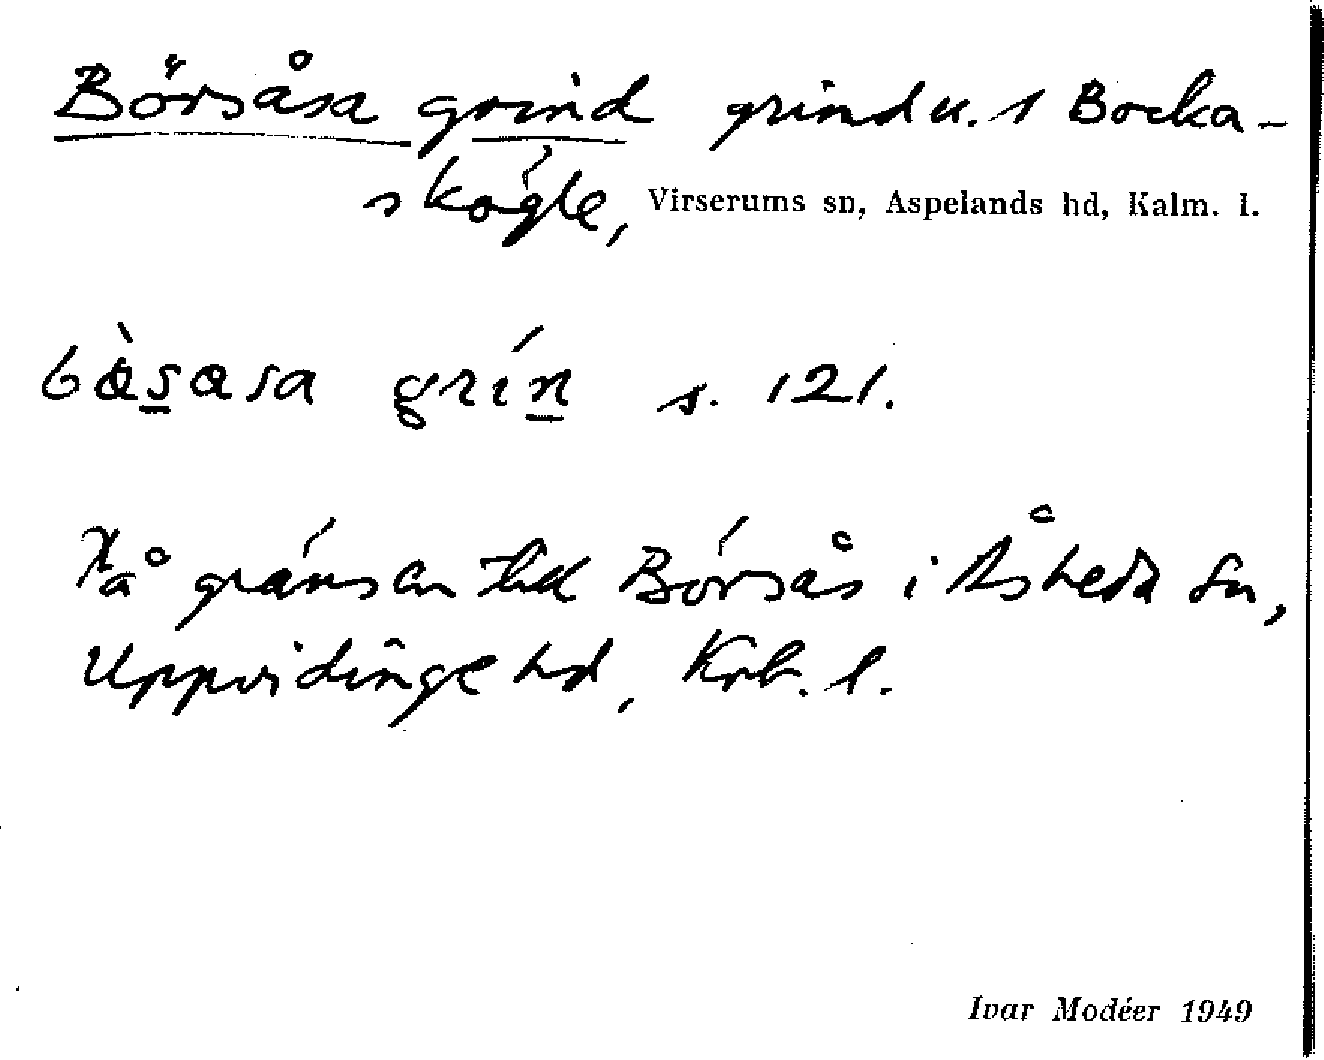 Börsåsa grind grind u. 1 Bocka-
skögle, Virserums sn, Aspelands hd, Kalm. l.
grín s. 121.
På gränsen till Börsås i Åsheda sn,
Uppvidinge hd, Krb. l.
Ivar Modéer 1949